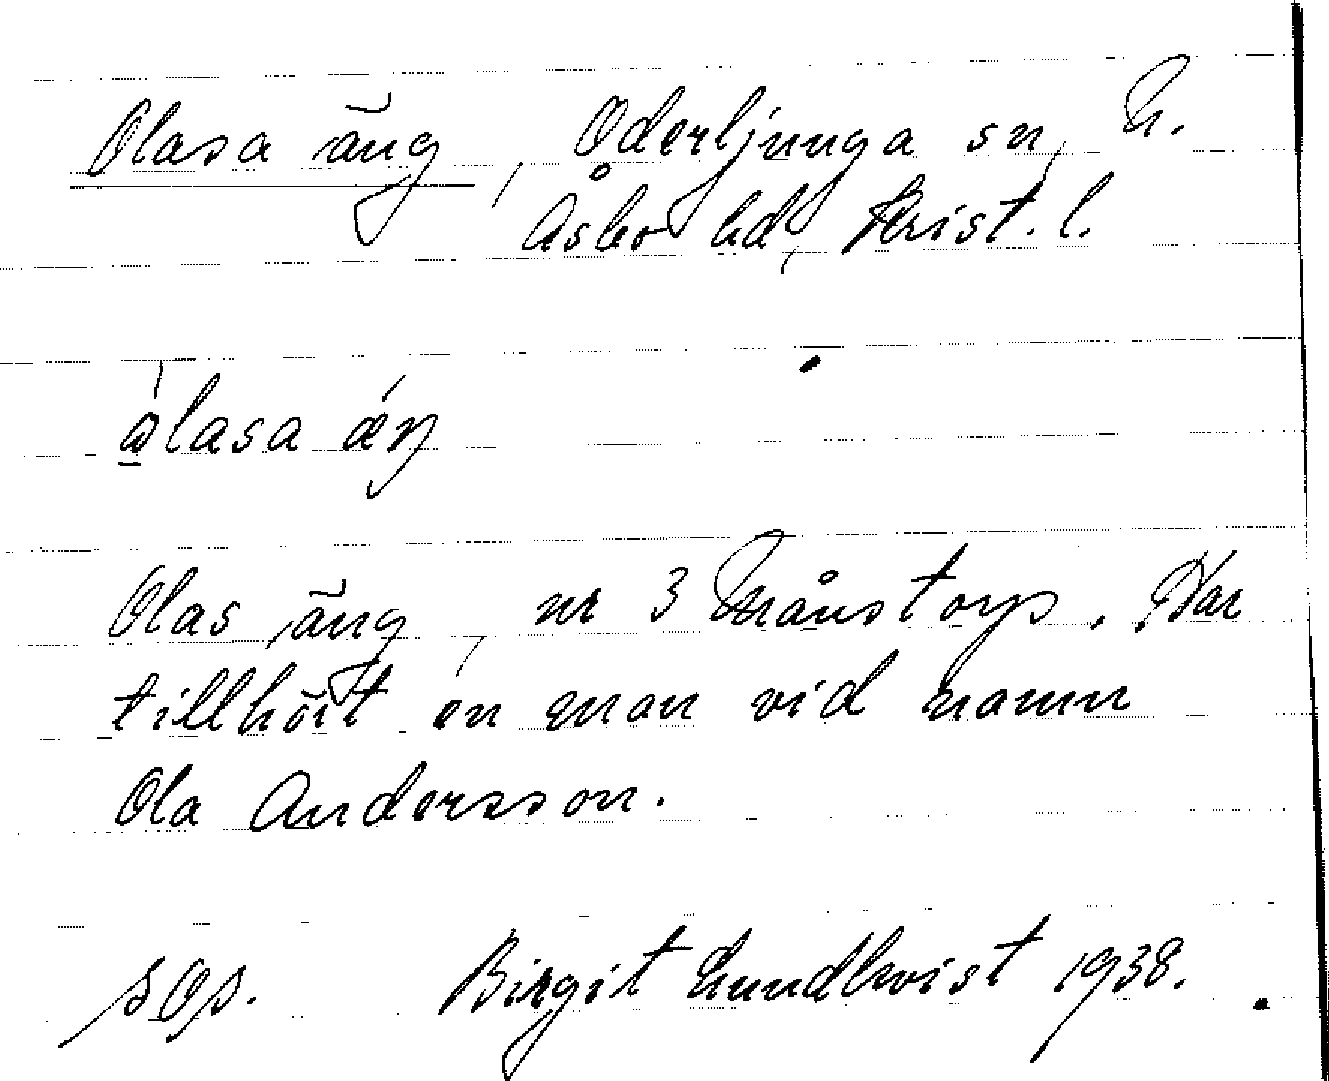 Olasa äng, Oderljunga sn, N.
Åsbo hd, Krist. l.
ålasa äŋ
Olas äng, nr 3 Månstorp. Har
tillhört en man vid namn
Ola Andersson.
Birgit Lundkvist 1938.